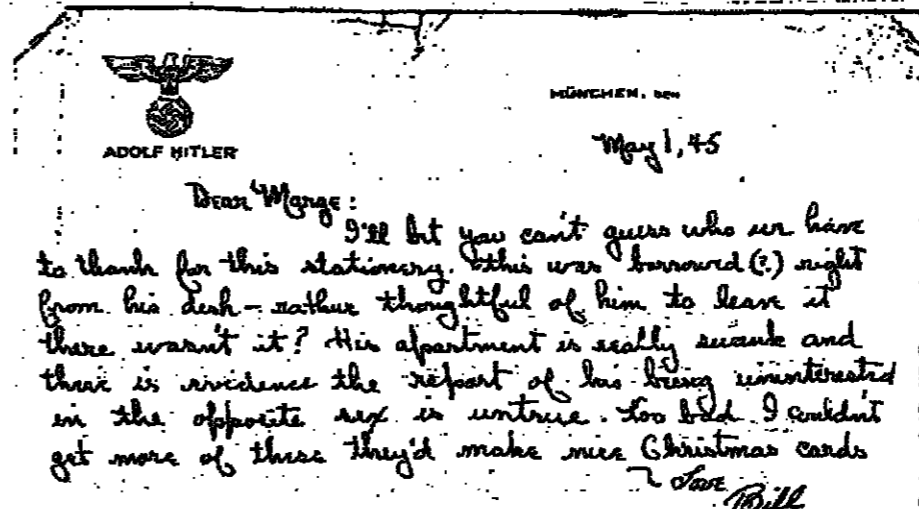 MÜNCHEN, DEN
ADOLF HITLER
May 1, 45
Dear Marge:
I'll bet you can't guess who we have
to thank for this stationery. This was borrowed (?) right
from his desk – rather thoughtful of him to leave it
there wasn't it? His apartment is really swank and
there is evidence the report of his being uninterested
in the opposite sex is untrue. Too bad I couldn't
get more of these they'd make nice Christmas cards
Love
Bill